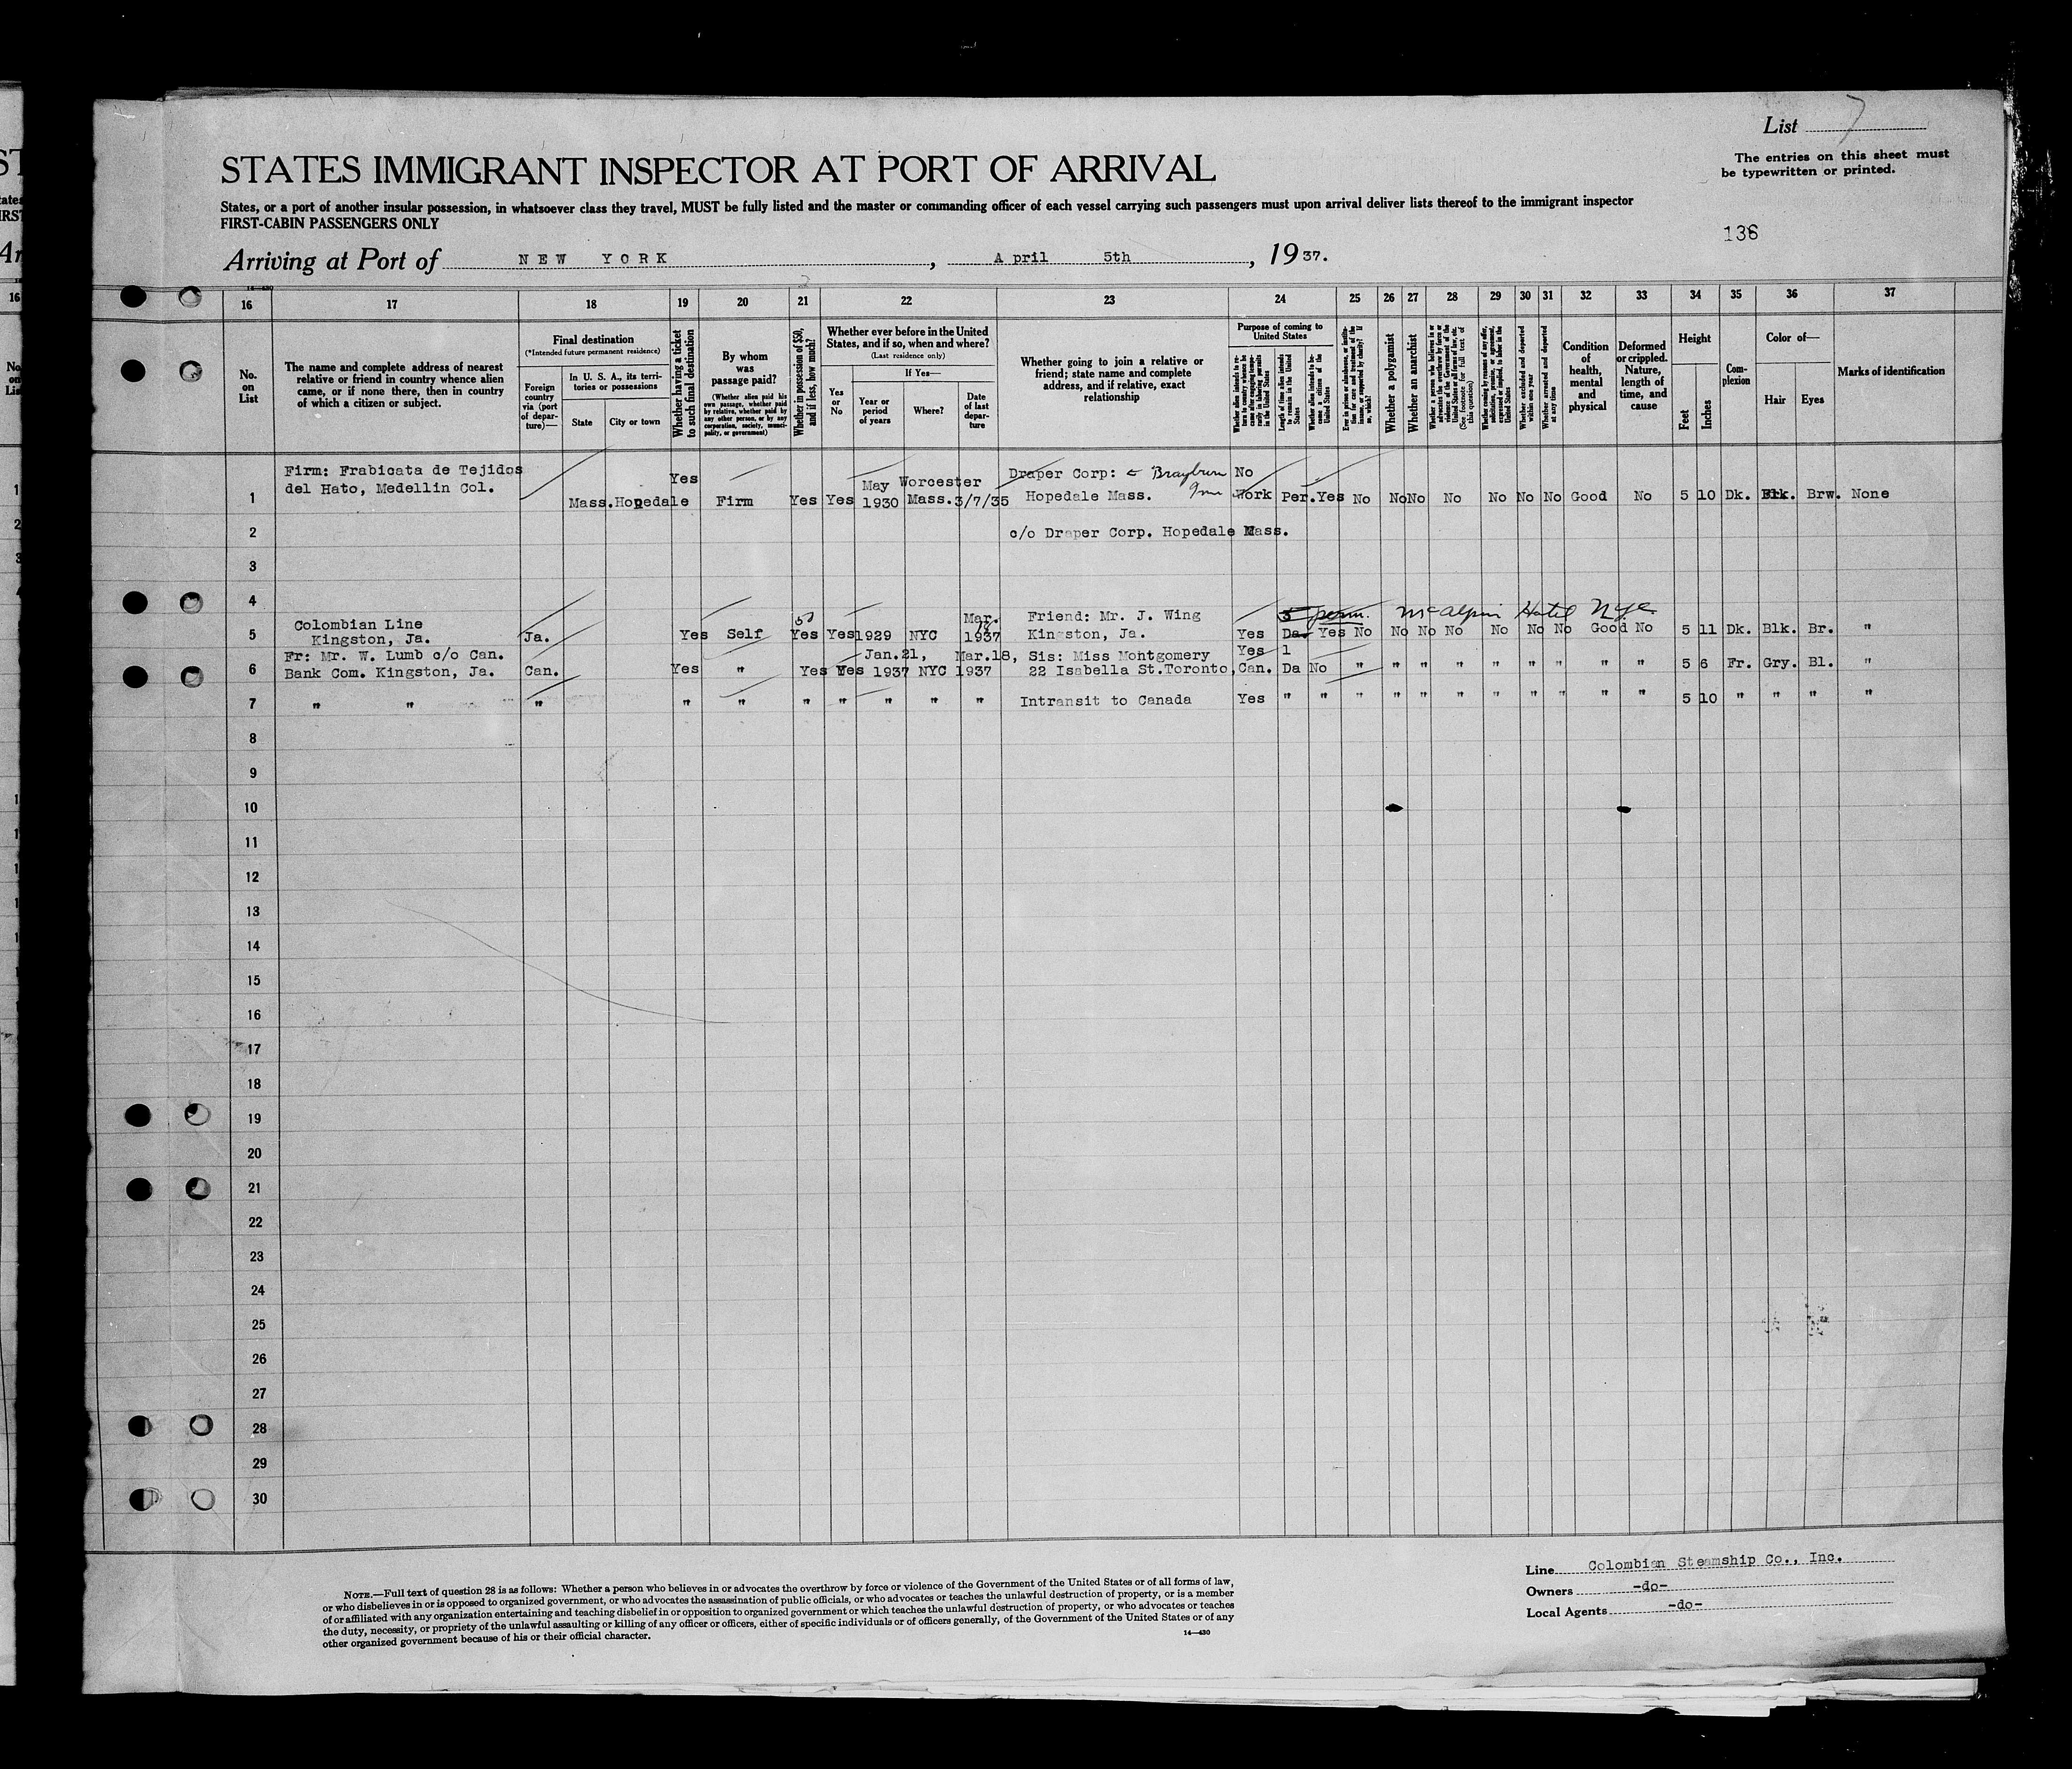 List 7
The entries on this sheet must
be typewritten or printed.
STATES IMMIGRANT INSPECTOR AT PORT OF ARRIVAL
States, or a port of another insular possession, in whatsoever class they travel, MUST be fully listed and the master or commanding officer of each vessel carrying such passengers must upon arrival deliver lists thereof to the immigrant inspector
FIRST-CABIN PASSENGERS ONLY
136
Arriving at Port of NEW YORK, April 5th, 1937.
14—430
16 17 18 19 20 21 22 23 24 25 26 27 28 29 30 31 32 33 34 35 36 37
No. on List
The name and complete address of nearest
relative or friend in country whence alien
came, or if none there, then in country
of which a citizen or subject.
Final destination
(*Intended future permanent residence)
Foreign country via (port of departure)—
In U. S. A., its territories or possessions
State
City or town
Whether having a ticket to such final destination
By whom was passage paid?
(Whether alien paid his own passage, whether paid by relative, whether paid by any other person, or by any corporation, society, municipality, or government)
Whether in possession of $50, and if less, how much?
Whether ever before in the United
States, and if so, when and where?
(Last residence only)
If Yes—
Yes or No
Year or period of years
Where?
Date of last departure
Whether going to join a relative or
friend; state name and complete
address, and if relative, exact
relationship
Purpose of coming to United States
Length of time alien intends to remain in the United States
Whether alien intends to become a citizen of the United States
Whether a polygamist
Whether an anarchist
(See footnote for full text of this question)
Whether excluded and deported within one year
Whether arrested and deported at any time
Condition of health, mental and physical
Deformed or crippled. Nature, length of time, and cause
Height
Feet
Inches
Complexion
Color of—
Hair
Eyes
Marks of identification
Firm: Frabicata de Tejidos Yes Draper Corp: Brayburn No
del Hato, Medellin Col. May Worcester
1 Mass. Hopedale Firm Yes Yes 1930 Mass. 3/7/35 Hopedale Mass. Inn Work Per. Yes No No No No No No No Good No 5 10 Dk. Blk. Brw. None
2 c/o Draper Corp. Hopedale Mass.
3
4
Colombian Line 50 Mar. Friend: Mr. J. Wing 5 perm. McAlpin Hotel NYC
5 Kingston, Ja. Ja. Yes Self Yes Yes 1929 NYC 18, 1937 Kingston, Ja. Yes Da. Yes No No No No No No No Good No 5 11 Dk. Blk. Br. "
Fr: Mr. W. Lumb c/o Can. Jan.21, Mar.18, Sis: Miss Montgomery Yes 1
6 Bank Com. Kingston, Ja. Can. Yes " Yes Yes 1937 NYC 1937 22 Isabella St.Toronto, Can. Da No " " " " " " " " " 5 6 Fr. Gry. Bl. "
7 " " " " " " " " " " Intransit to Canada Yes " " " " " " " " " " " 5 10 " " " "
8
9
10
11
12
13
14
15
16
17
18
19
20
21
22
23
24
25
26
27
28
29
30
NOTE.—Full text of question 28 is as follows: Whether a person who believes in or advocates the overthrow by force or violence of the Government of the United States or of all forms of law,
or who disbelieves in or is opposed to organized government, or who advocates the assassination of public officials, or who advocates or teaches the unlawful destruction of property, or is a member
of or affiliated with any organization entertaining and teaching disbelief in or opposition to organized government or which teaches the unlawful destruction of property, or who advocates or teaches
the duty, necessity, or propriety of the unlawful assaulting or killing of any officer or officers, either of specific individuals or of officers generally, of the Government of the United States or of any
other organized government because of his or their official character.
14—430
Line Colombian Steamship Co., Inc.
Owners -do-
Local Agents -do-